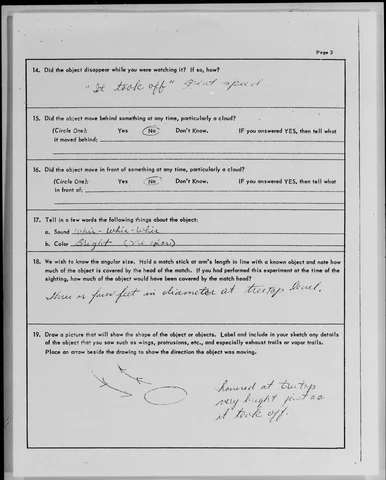 Page 3
14. Did the object disappear while you were watching it? If so, how?
"It took off" great speed.
15. Did the object move behind something at any time, particularly a cloud?
(Circle One): Yes No Don't Know. IF you answered YES, then tell what
it moved behind:
16. Did the object move in front of something at any time, particularly a cloud?
(Circle One): Yes No Don't Know. IF you answered YES, then tell what
in front of:
17. Tell in a few words the following things about the object:
a. Sound Whir - Whir - Whir
b. Color Bright
18. We wish to know the angular size. Hold a match stick at arm's length in line with a known object and note how
much of the object is covered by the head of the match. If you had performed this experiment at the time of the
sighting, how much of the object would have been covered by the match head?
Three or four feet in diameter at treetop level.
19. Draw a picture that will show the shape of the object or objects. Label and include in your sketch any details
of the object that you saw such as wings, protrusions, etc., and especially exhaust trails or vapor trails.
Place an arrow beside the drawing to show the direction the object was moving.
hovered at treetop
very bright just as
it took off.